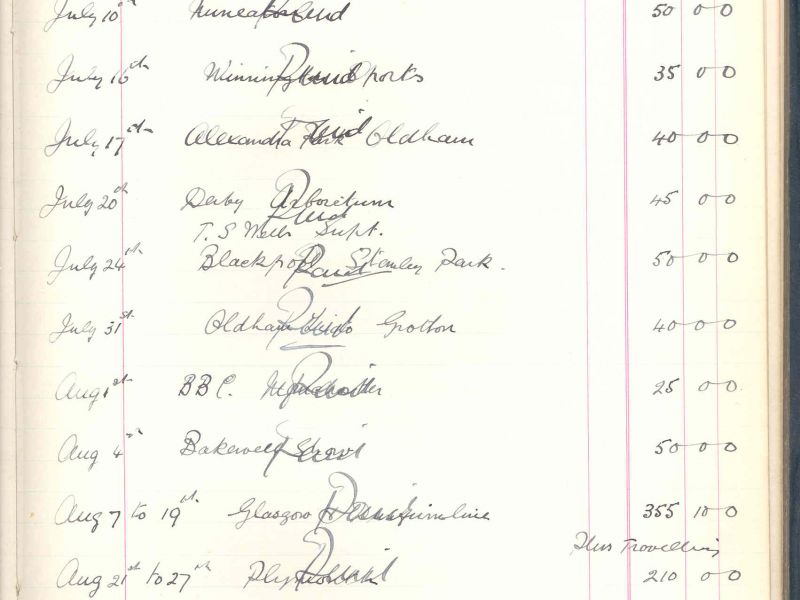 July 10th Nuneaton Paid 50 0 0
July 16th Winning Paid 35 0 0
July 17th Alexandra Park Oldham Paid 40 0 0
July 20th Derby Arboretum Paid 45 0 0
T. S Wells Supt.
July 24th Blackpool Stanley Park. Paid 50 0 0
July 31st Oldham Grotton Paid 40 0 0
Aug 1st BBC. Manchester Paid 25 0 0
Aug 4th Bakewell Show Paid 50 0 0
Aug 7 to 19th Glasgow Paid 355 10 0
Plus Travelling
Aug 21st to 27th Plymouth Paid 210 0 0